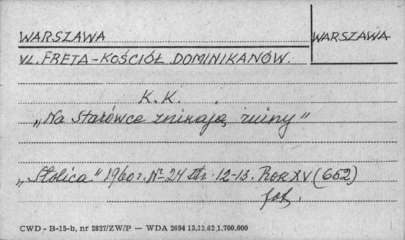 WARSZAWA
WARSZAWA
UL. FRETA - KOŚCIÓŁ DOMINIKANÓW.
K. K.
„Na Starówce znikają ruiny"
„Stolica" 1960 r. Nr 24 str. 12-13. Rok XV (652)
fot.
CWD - B-15-b, nr 2827/ZW/P — WDA 2694 13.11.62 1.700.000